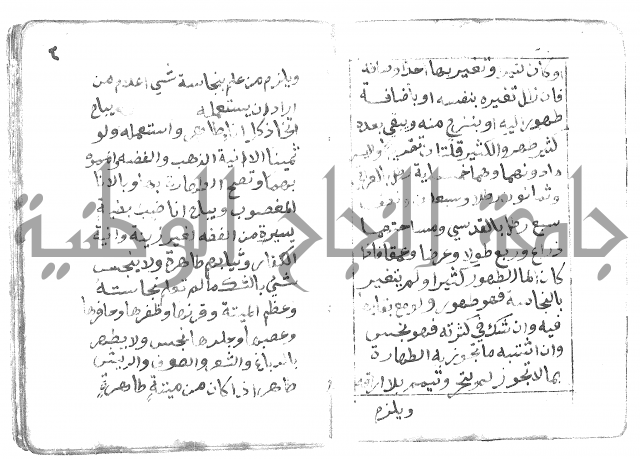 او كان كثير وتغير بها احد اوصافه
فان زال تغيره بنفسه او باضافة
طهور اليه او بنزح منه ويبقى بعده
كثير طهر والكثير قلتان تقريبا واليسير
ما دونهما وهما خمسماية رطل
وثمانون رطلا وسبعان
سبع رطل بالقدسي ومساحتهما
ذراع وربع طولا وعرضا وعمقا فاذا
كان الما الطهور كثيرا ولم يتغير
بالنجاسة فهو طهور ولو مع بقائها
فيه وان شك في كثرته فهو نجس
وان اشتبه ما تجوز به الطهارة
بما لا تجوز لم يتحر وتيمم بلا اراقة
ويلزم
٢
ويلزم من علم بنجاسة شي اعلام من
اراد ان يستعمله يباح
اتخاذ كل انا طاهر واستعماله ولو
ثمينا الا انية الذهب والفضه والمموه
بهما وتصح الطهارة بهما وبالانا
المغصوب ويباح انا ضبب بضبة
يسيرة من الفضه لغير زينة وانية
الكفار وثيابهم طاهرة ولا ينجس
شي بالشك ما لم تعلم نجاسته
وعظم الميتة وقرنها وظفرها وحافرها
وعصبها وجلدها نجس ولا يطهر
بالدباغ والشعر والصوف والريش
طاهر اذا كان من ميتة طاهرة
جامعة النجاح الوطنية